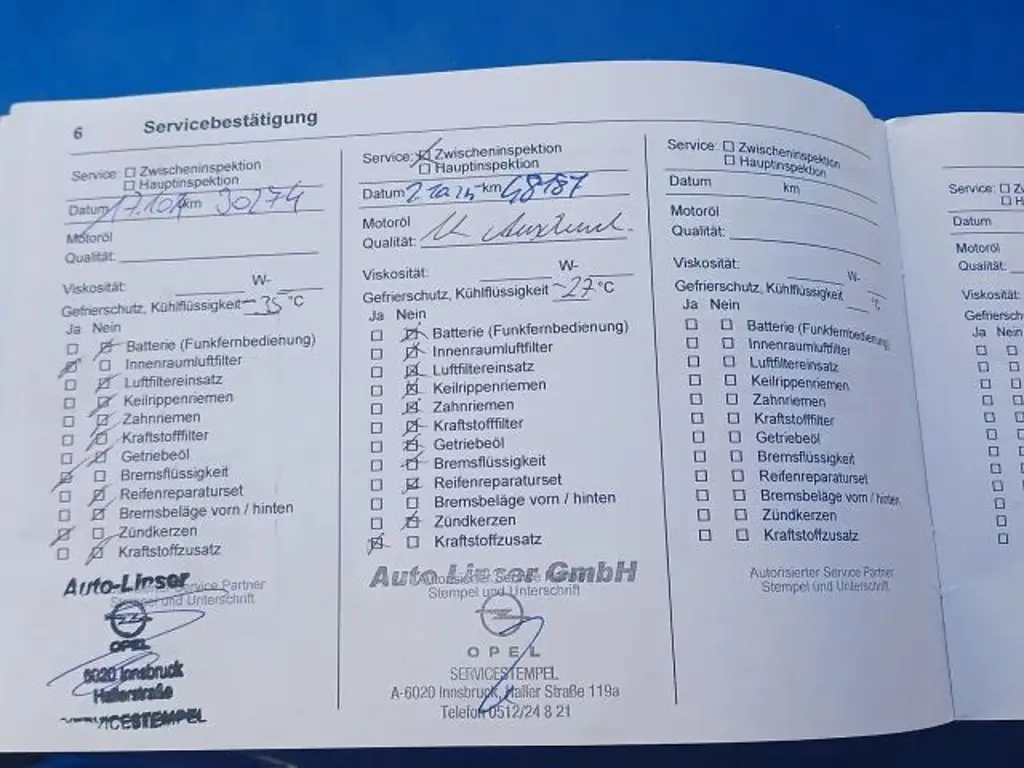 6 Servicebestätigung
Service: ☐ Zwischeninspektion
☐ Hauptinspektion
Datum km 30274
Motoröl
Qualität:
Viskosität: W-
Gefrierschutz, Kühlflüssigkeit -35 °C
Ja Nein
☐ ☒ Batterie (Funkfernbedienung)
☒ ☐ Innenraumluftfilter
☐ ☒ Luftfiltereinsatz
☐ ☒ Keilrippenriemen
☐ ☒ Zahnriemen
☐ ☒ Kraftstofffilter
☐ ☒ Getriebeöl
☒ ☐ Bremsflüssigkeit
☐ ☒ Reifenreparaturset
☐ ☒ Bremsbeläge vorn / hinten
☒ ☐ Zündkerzen
☐ ☒ Kraftstoffzusatz
Auto-Linser
Service Partner
Stempel und Unterschrift
OPEL
6020 Innsbruck
Hallerstraße
Service: ☒ Zwischeninspektion
☐ Hauptinspektion
Datum km 48187
Motoröl
Qualität:
Viskosität: W-
Gefrierschutz, Kühlflüssigkeit -27 °C
Ja Nein
☐ ☒ Batterie (Funkfernbedienung)
☐ ☒ Innenraumluftfilter
☐ ☒ Luftfiltereinsatz
☐ ☒ Keilrippenriemen
☐ ☒ Zahnriemen
☐ ☒ Kraftstofffilter
☐ ☒ Getriebeöl
☐ ☒ Bremsflüssigkeit
☐ ☒ Reifenreparaturset
☐ ☐ Bremsbeläge vorn / hinten
☐ ☒ Zündkerzen
☒ ☐ Kraftstoffzusatz
Auto Linser GmbH
Autorisierter Service
Stempel und Unterschrift
OPEL
SERVICESTEMPEL
A-6020 Innsbruck, Haller Straße 119a
Telefon 0512/24 8 21
Service: ☐ Zwischeninspektion
☐ Hauptinspektion
Datum km
Motoröl
Qualität:
Viskosität: W-
Gefrierschutz, Kühlflüssigkeit °C
Ja Nein
☐ ☐ Batterie (Funkfernbedienung)
☐ ☐ Innenraumluftfilter
☐ ☐ Luftfiltereinsatz
☐ ☐ Keilrippenriemen
☐ ☐ Zahnriemen
☐ ☐ Kraftstofffilter
☐ ☐ Getriebeöl
☐ ☐ Bremsflüssigkeit
☐ ☐ Reifenreparaturset
☐ ☐ Bremsbeläge vorn / hinten
☐ ☐ Zündkerzen
☐ ☐ Kraftstoffzusatz
Autorisierter Service Partner
Stempel und Unterschrift
Service: ☐
☐
Datum
Motoröl
Qualität:
Viskosität:
Ja Nein